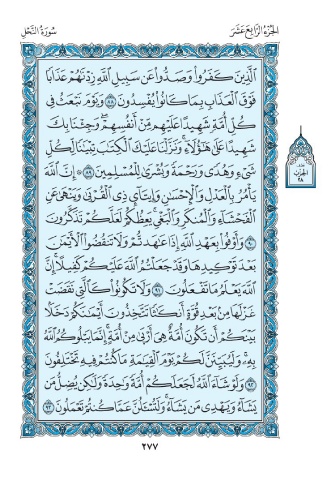 الجزء الرابع عشر
سورة النحل
ٱلَّذِينَ كَفَرُواْ وَصَدُّواْ عَن سَبِيلِ ٱللَّهِ زِدۡنَٰهُمۡ عَذَابٗا
فَوۡقَ ٱلۡعَذَابِ بِمَا كَانُواْ يُفۡسِدُونَ ٨٨ وَيَوۡمَ نَبۡعَثُ فِي
كُلِّ أُمَّةٖ شَهِيدًا عَلَيۡهِم مِّنۡ أَنفُسِهِمۡۖ وَجِئۡنَا بِكَ
شَهِيدًا عَلَىٰ هَٰٓؤُلَآءِۚ وَنَزَّلۡنَا عَلَيۡكَ ٱلۡكِتَٰبَ تِبۡيَٰنٗا لِّكُلِّ
شَيۡءٖ وَهُدٗى وَرَحۡمَةٗ وَبُشۡرَىٰ لِلۡمُسۡلِمِينَ ٨٩ ۞ إِنَّ ٱللَّهَ
يَأۡمُرُ بِٱلۡعَدۡلِ وَٱلۡإِحۡسَٰنِ وَإِيتَآيِٕ ذِي ٱلۡقُرۡبَىٰ وَيَنۡهَىٰ عَنِ
ٱلۡفَحۡشَآءِ وَٱلۡمُنكَرِ وَٱلۡبَغۡيِۚ يَعِظُكُمۡ لَعَلَّكُمۡ تَذَكَّرُونَ
٩٠ وَأَوۡفُواْ بِعَهۡدِ ٱللَّهِ إِذَا عَٰهَدتُّمۡ وَلَا تَنقُضُواْ ٱلۡأَيۡمَٰنَ
بَعۡدَ تَوۡكِيدِهَا وَقَدۡ جَعَلۡتُمُ ٱللَّهَ عَلَيۡكُمۡ كَفِيلًاۚ إِنَّ
ٱللَّهَ يَعۡلَمُ مَا تَفۡعَلُونَ ٩١ وَلَا تَكُونُواْ كَٱلَّتِي نَقَضَتۡ
غَزۡلَهَا مِنۢ بَعۡدِ قُوَّةٍ أَنكَٰثٗا تَتَّخِذُونَ أَيۡمَٰنَكُمۡ دَخَلَۢا
بَيۡنَكُمۡ أَن تَكُونَ أُمَّةٌ هِيَ أَرۡبَىٰ مِنۡ أُمَّةٍۚ إِنَّمَا يَبۡلُوكُمُ ٱللَّهُ
بِهِۦۚ وَلَيُبَيِّنَنَّ لَكُمۡ يَوۡمَ ٱلۡقِيَٰمَةِ مَا كُنتُمۡ فِيهِ تَخۡتَلِفُونَ
٩٢ وَلَوۡ شَآءَ ٱللَّهُ لَجَعَلَكُمۡ أُمَّةٗ وَٰحِدَةٗ وَلَٰكِن يُضِلُّ مَن
يَشَآءُ وَيَهۡدِي مَن يَشَآءُۚ وَلَتُسۡـَٔلُنَّ عَمَّا كُنتُمۡ تَعۡمَلُونَ ٩٣
الحزب
٢٨
٢٧٧